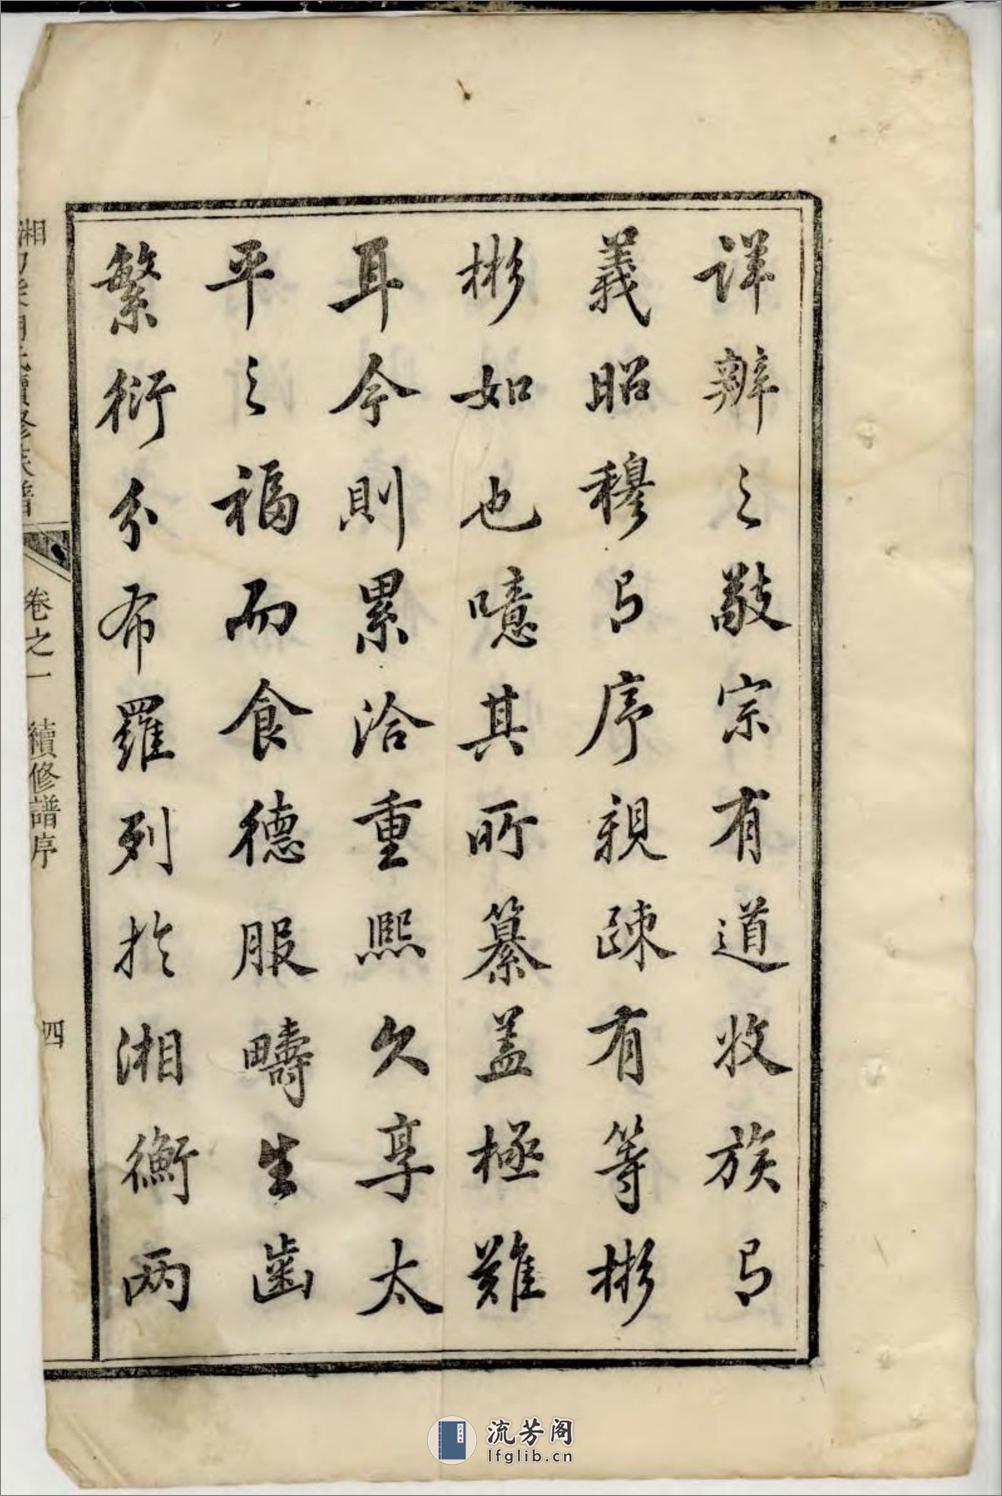 詳辨之敬宗有道收族有
義昭穆有序親疎有等彬
彬如也噫其所纂蓋極難
耳今則累洽重熙久享太
平之福而食德服疇生齒
繁衍分布羅列於湘衡两
續修族譜
卷之一 續修譜序 四
流芳阁
lfglib.cn